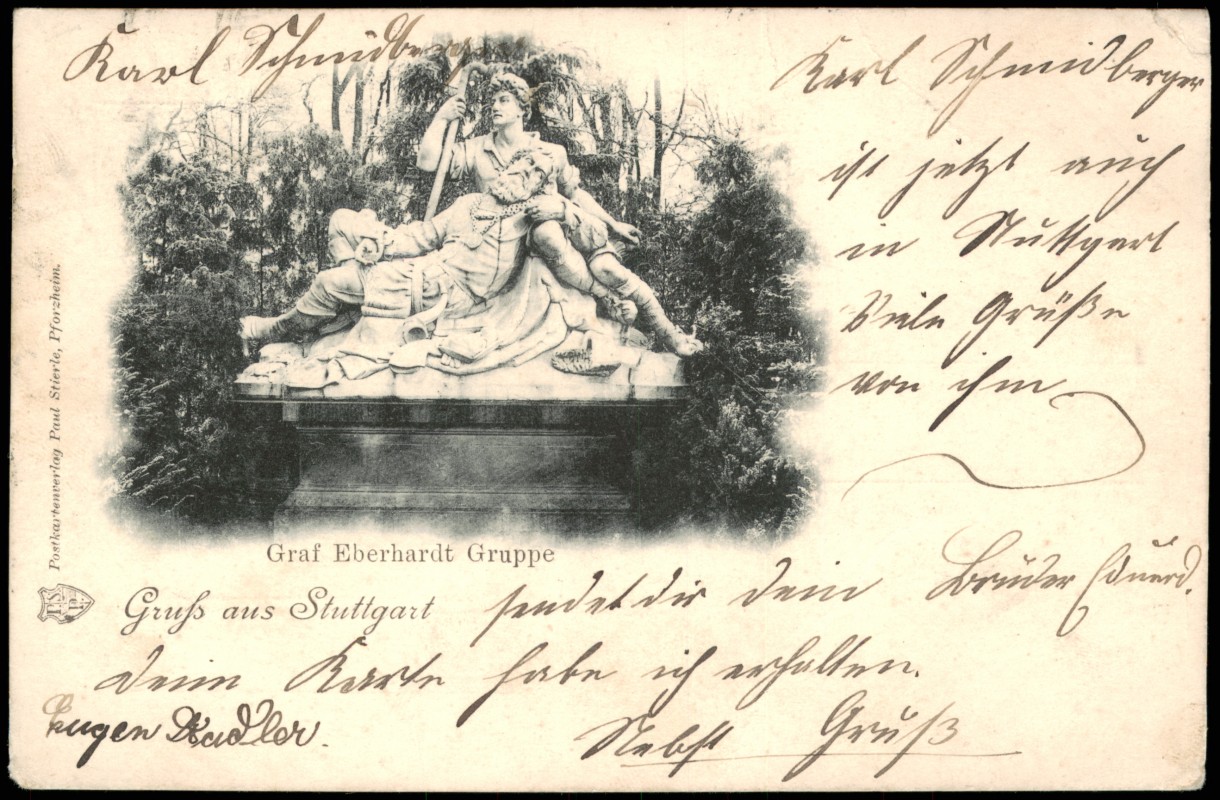 Karl Schmidberger
Karl Schmidberger
ist jetzt auch
in Stuttgart
Viele Grüße
von ihm
Postkartenverlag Paul Stierle, Pforzheim.
P.S.
P.
Graf Eberhardt Gruppe
Gruß aus Stuttgart
sendet dir dein Bruder Eduard.
Deine Karte habe ich erhalten.
Eugen Stadler.
Nebst Gruß